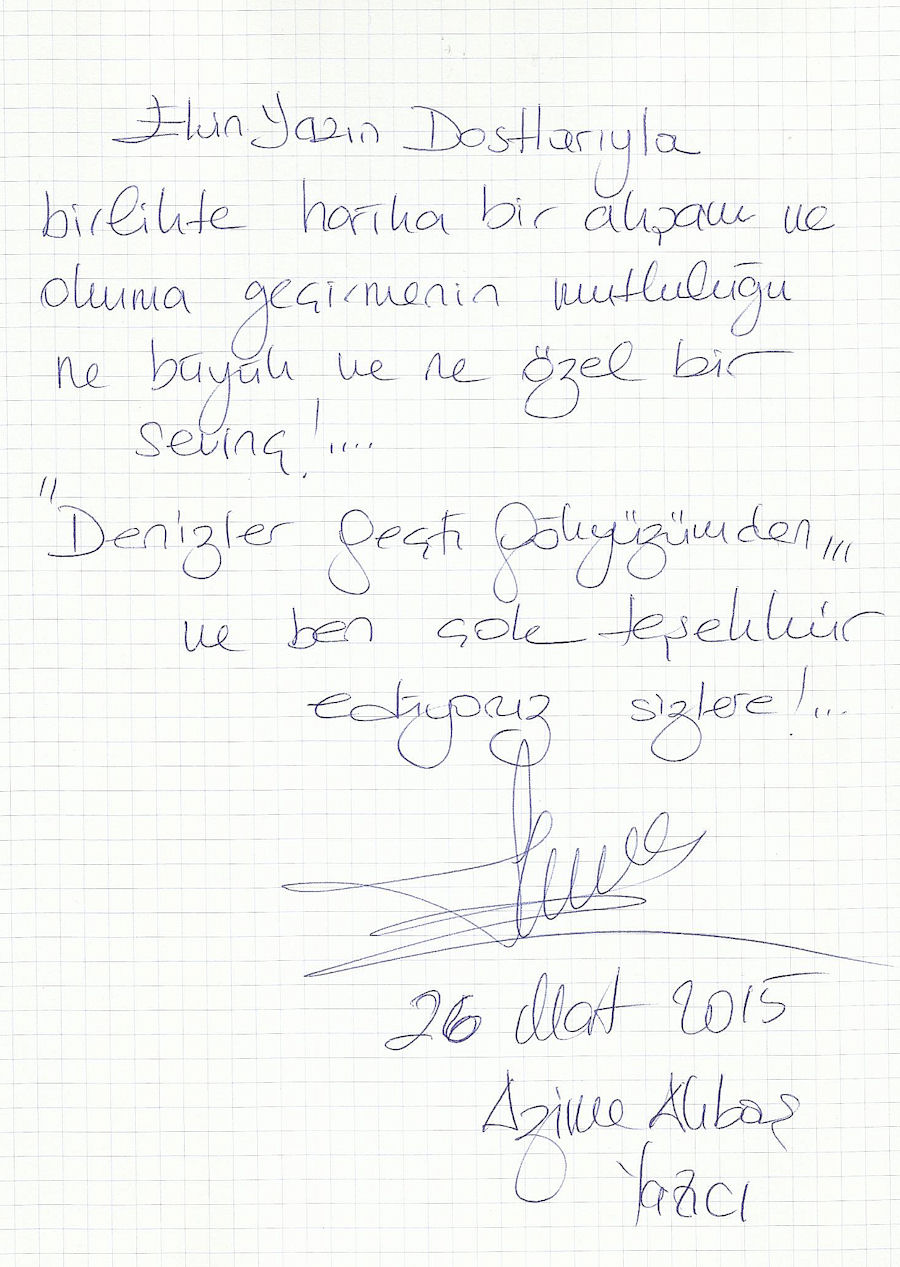 Ekin Yazın Dostlarıyla
birlikte harika bir akşam ve
okuma geçirmenin mutluluğu
ne büyük ve ne özel bir
sevinç!....
"Denizler geçti gökyüzümden,,,
ve ben çok teşekkür
ediyoruz sizlere!...
26 Mart 2015
Azime Akbaş
Yazıcı